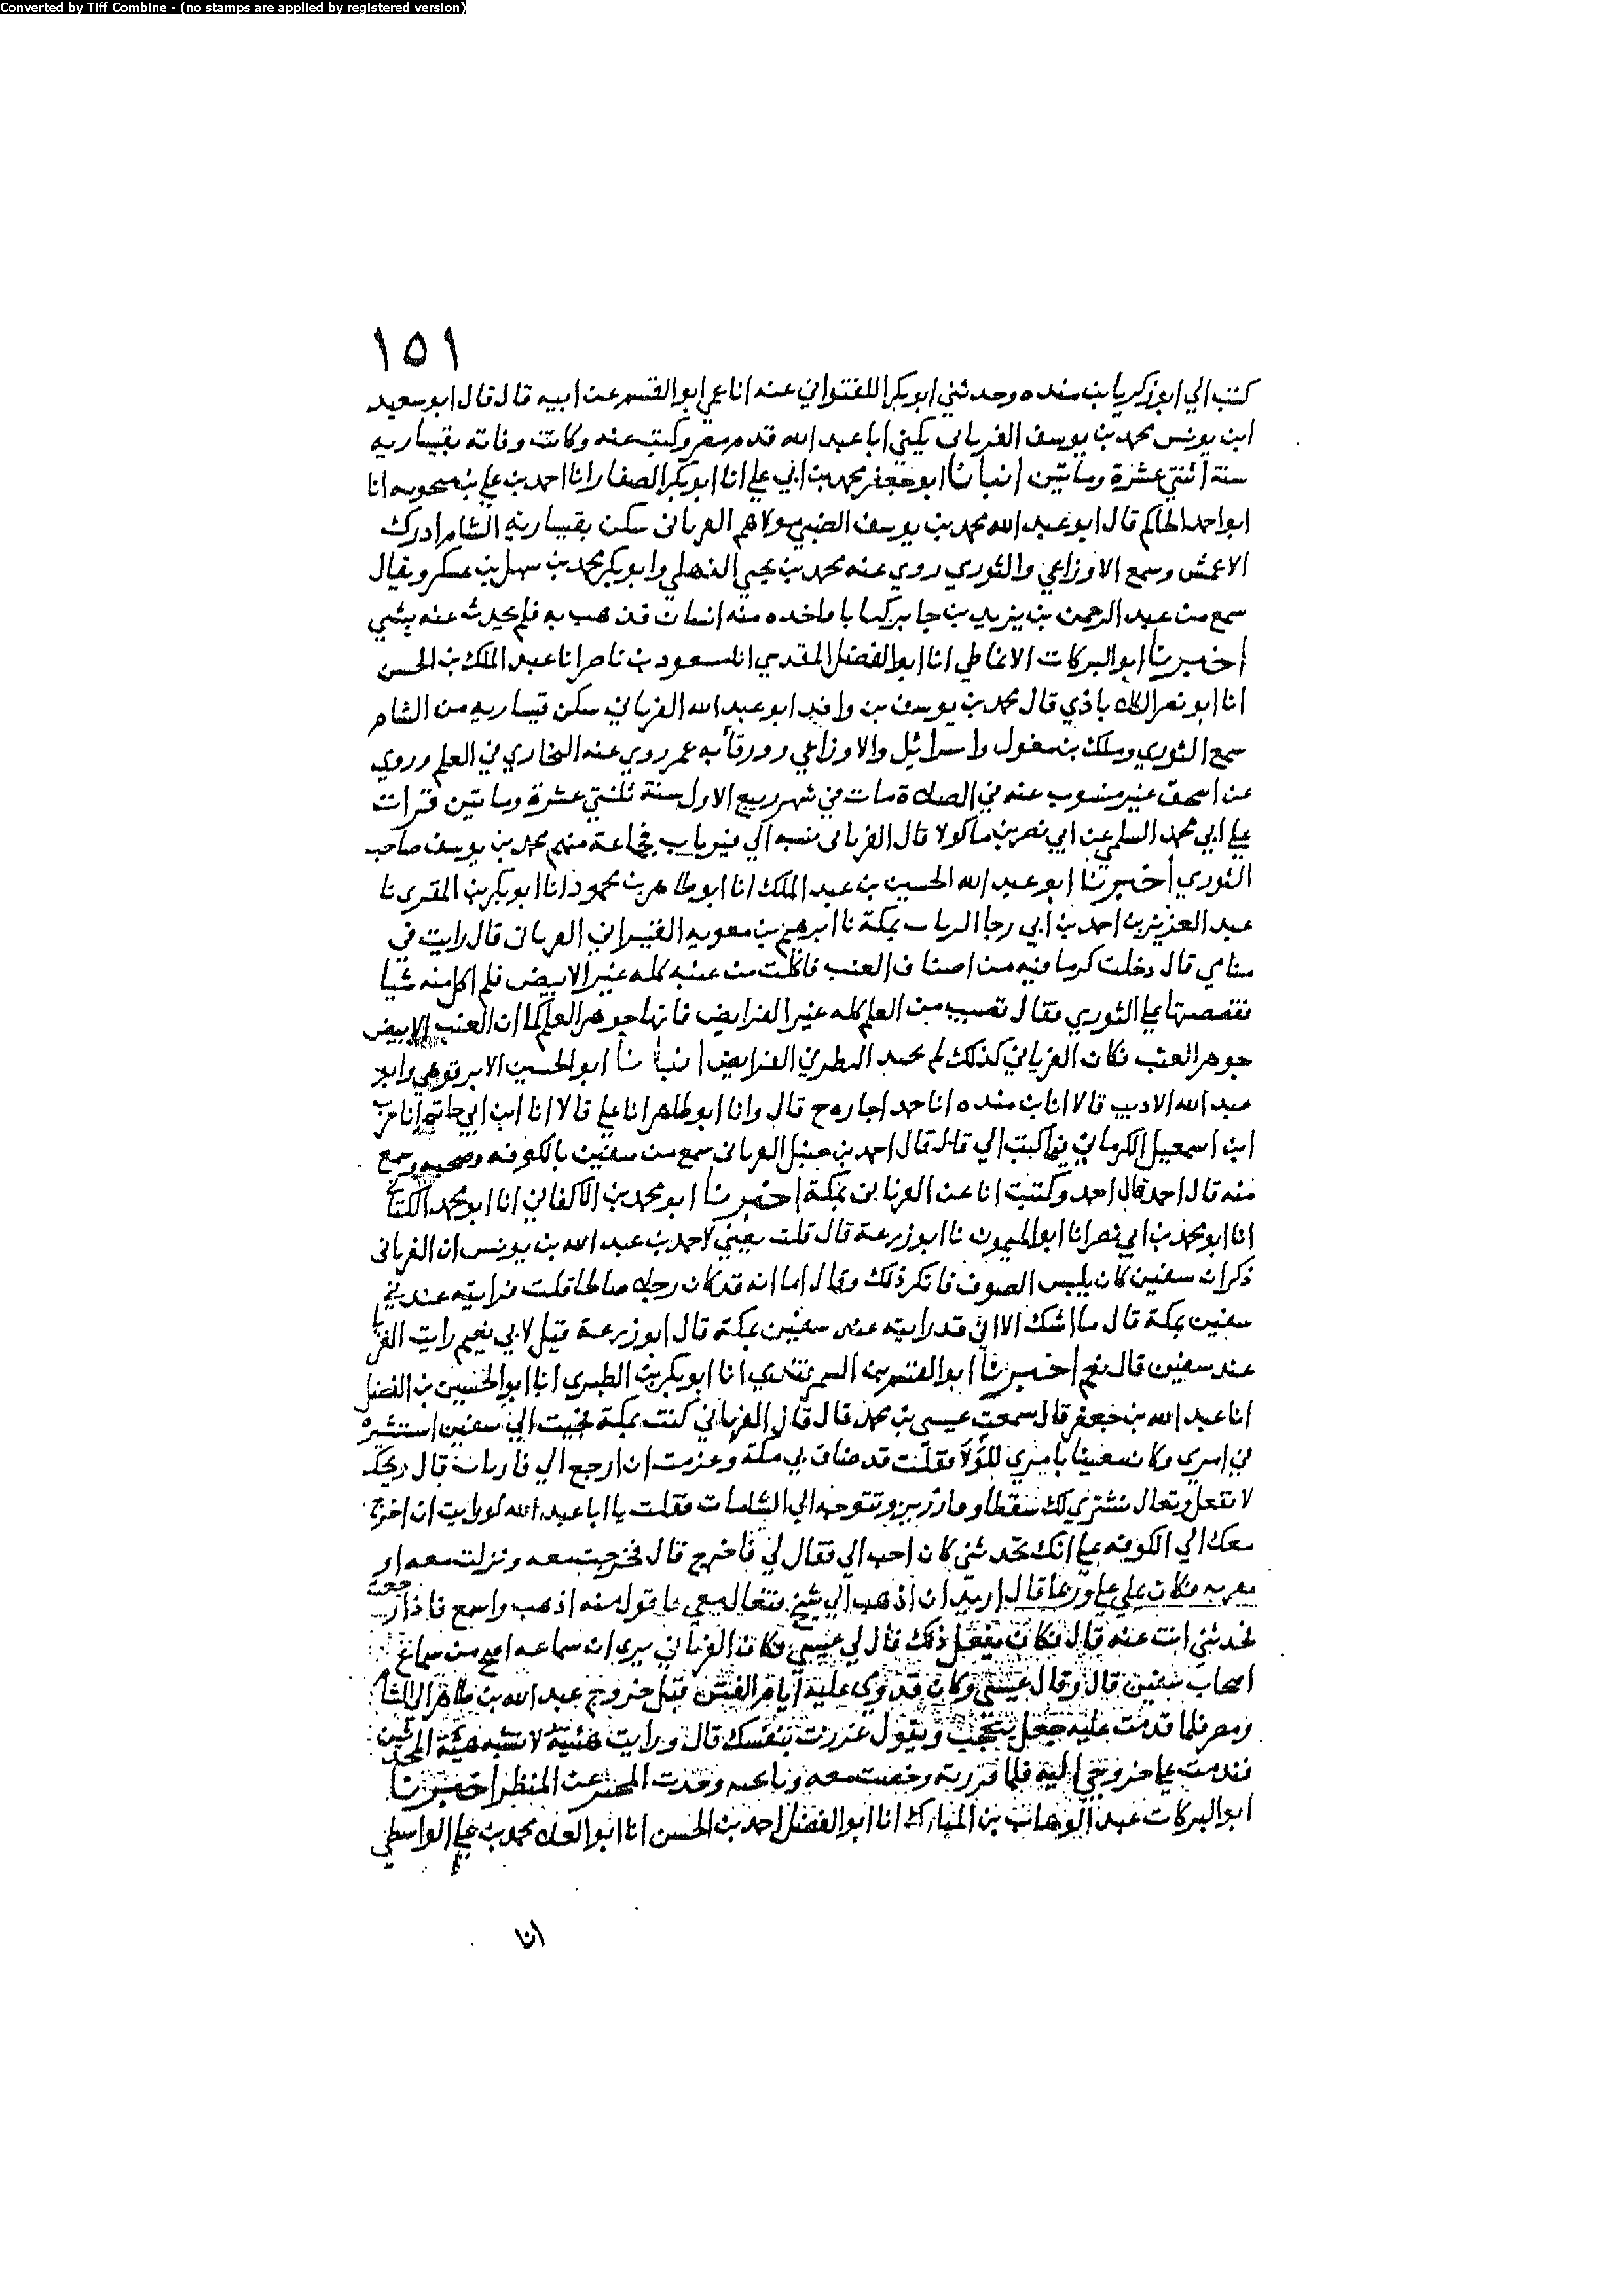 Converted by Tiff Combine - (no stamps are applied by registered version)
١٥١
كتب الي ابو زكريا بن منده وحدثني ابو بكر اللفتواني عنه انا عمي ابو القسم عن ابيه قال قال ابو سعيد
ابن يونس محمد بن يوسف الفريابي يكني ابا عبد الله قدم مصر وكتب عنه وكانت وفاته بقيساريه
سنة اثنتي عشرة وماتين انبانا ابو جعفر محمد بن ابي علي انا ابو بكر الصفار انا احمد بن علي بن منجويه انا
ابو احمد الحاكم قال ابو عبد الله محمد بن يوسف الضبي مولاهم الفريابي سكن بقيساريه الشام ادرك
الاعمش وسمع الاوزاعي والثوري روي عنه محمد بن يحيي الذهلي وابو بكر محمد بن سهل بن عسكر ويقال
سمع من عبد الرحمن بن يزيد بن جابر كتابا فاخذه منه انسان فذهب به فلم يحدث عنه بشي
اخبرنا ابو البركات الانماطي انا ابو الفضل المقدسي انا مسعود بن ناصر انا عبد الملك بن الحسن
انا ابو نصر الكلاباذي قال محمد بن يوسف بن واقد ابو عبد الله الفريابي سكن قيساريه من الشام
سمع الثوري ومالك بن مغول واسرائيل والاوزاعي وورقا بن عمر روي عنه البخاري في العلم وروي
عن اسحق غير منسوب عنه في الصلاة مات في شهر ربيع الاول سنة ثنتي عشرة وماتين قرات
علي ابي محمد السلمي عن ابي نصر بن ماكولا قال الفريابي نسبه الي فيرياب فجماعة منهم محمد بن يوسف صاحب
الثوري اخبرنا ابو عبد الله الحسين بن عبد الملك انا ابو طاهر بن محمود انا ابو بكر بن المقرى نا
عبد العزيز بن احمد بن ابي رجا بمكة نا ابرهيم بن معويه القيسراني الفريابي قال رايت في
منامي قال دخلت كرما فيه من اصناف العنب فاكلت من عنبه كله غير الابيض فلم اكل منه شيا
فقصصتها علي الثوري فقال تصيب من العلم كله غير الفرايض فانها جوهر العلم كما ان العنب الابيض
جوهر العنب فكان الفريابي كذلك لم يجد النظر في الفرايض انبانا ابو الحسين الابرقوهي وابو
عبد الله الاديب قالا انا بن منده انا حمد اجازه ح قال وانا ابو طاهر انا علي قالا انا ابن ابي حاتم انا حرب
ابن اسمعيل الكرماني فيما كتب الي قال قال احمد بن حنبل الفريابي سمع من سفين بالكوفه وصحبه وسمع
منه قال احمد قال احمد وكتبت انا عن الفريابي بمكة اخبرنا ابو محمد بن الاكفاني انا ابو محمد الكتاني
انا ابو محمد بن ابي نصر انا ابو الميمون نا ابو زرعة قال قلت يعني لاحمد بن عبد الله بن يونس ان الفريابي
ذكر ان سفين كان يلبس الصوف فانكر ذلك وقال اما انه قد كان رجلا صالحا قلت فرايته عند
سفين بمكة قال ما اشك الا اني قد رايته عند سفين بمكة قال ابو زرعة قيل لابي نعيم رايت الفريابي
عند سفين قال نعم اخبرنا ابو القسم بن السمرقندي انا ابو بكر بن الطبري انا ابو الحسين بن الفضل
انا عبد الله بن جعفر قال سمعت عيسي بن محمد قال قال الفريابي كنت بمكة فجيت الي سفين استشيره
في امري وكان سفين فقلت قد ضاق بي مكة وعزمت ان ارجع الي فارياب قال ويحك
لا تفعل وتعال نشتري لك سقطا وتتوجه الي الشامات فقلت يا ابا عبد الله لو رايت ان اخرج
معك الي الكوفه علي انك تحدثني كان احب الي فقال لي فاخرج قال فخرجت معه ونزلت معه او
بقربه فكان يملي علي وربما قال اريد ان اذهب الي شيخ فتعال معي فاقول منه اذهب واسمع فاذا رجعت
تحدثني انت عنه قال فكان يفعل ذلك قال لي عيسي فكان الفريابي يري ان سماعه اصح من سماع
اصحاب سفين قال وقال عيسي وكان قد عليه ايام الفتن قبل خروج عبد الله بن طاهر الي الشام
ومصر فلما قدمت عليه جعل يتعجب ويقول غررت بنفسك قال ورايت هيئة لا تشبه هيئة المحدثين
فندمت علي خروجي اليه فلما معه وجدت المخبر غير المنظر اخبرنا
ابو البركات عبد الوهاب بن المبارك انا ابو الفضل احمد بن الحسن انا ابو العلا محمد بن علي الواسطي
انا